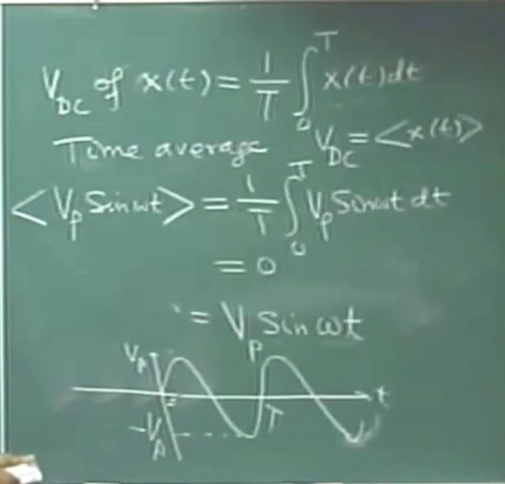 V_DC of x(t) = 1/T ∫₀ᵀ x(t)dt
Time average V_DC = <x(t)>
<V_p Sinωt> = 1/T ∫₀ᵀ V_p Sinωt dt
= 0
= V_p Sin ωt
V_p
t
T
-V_p